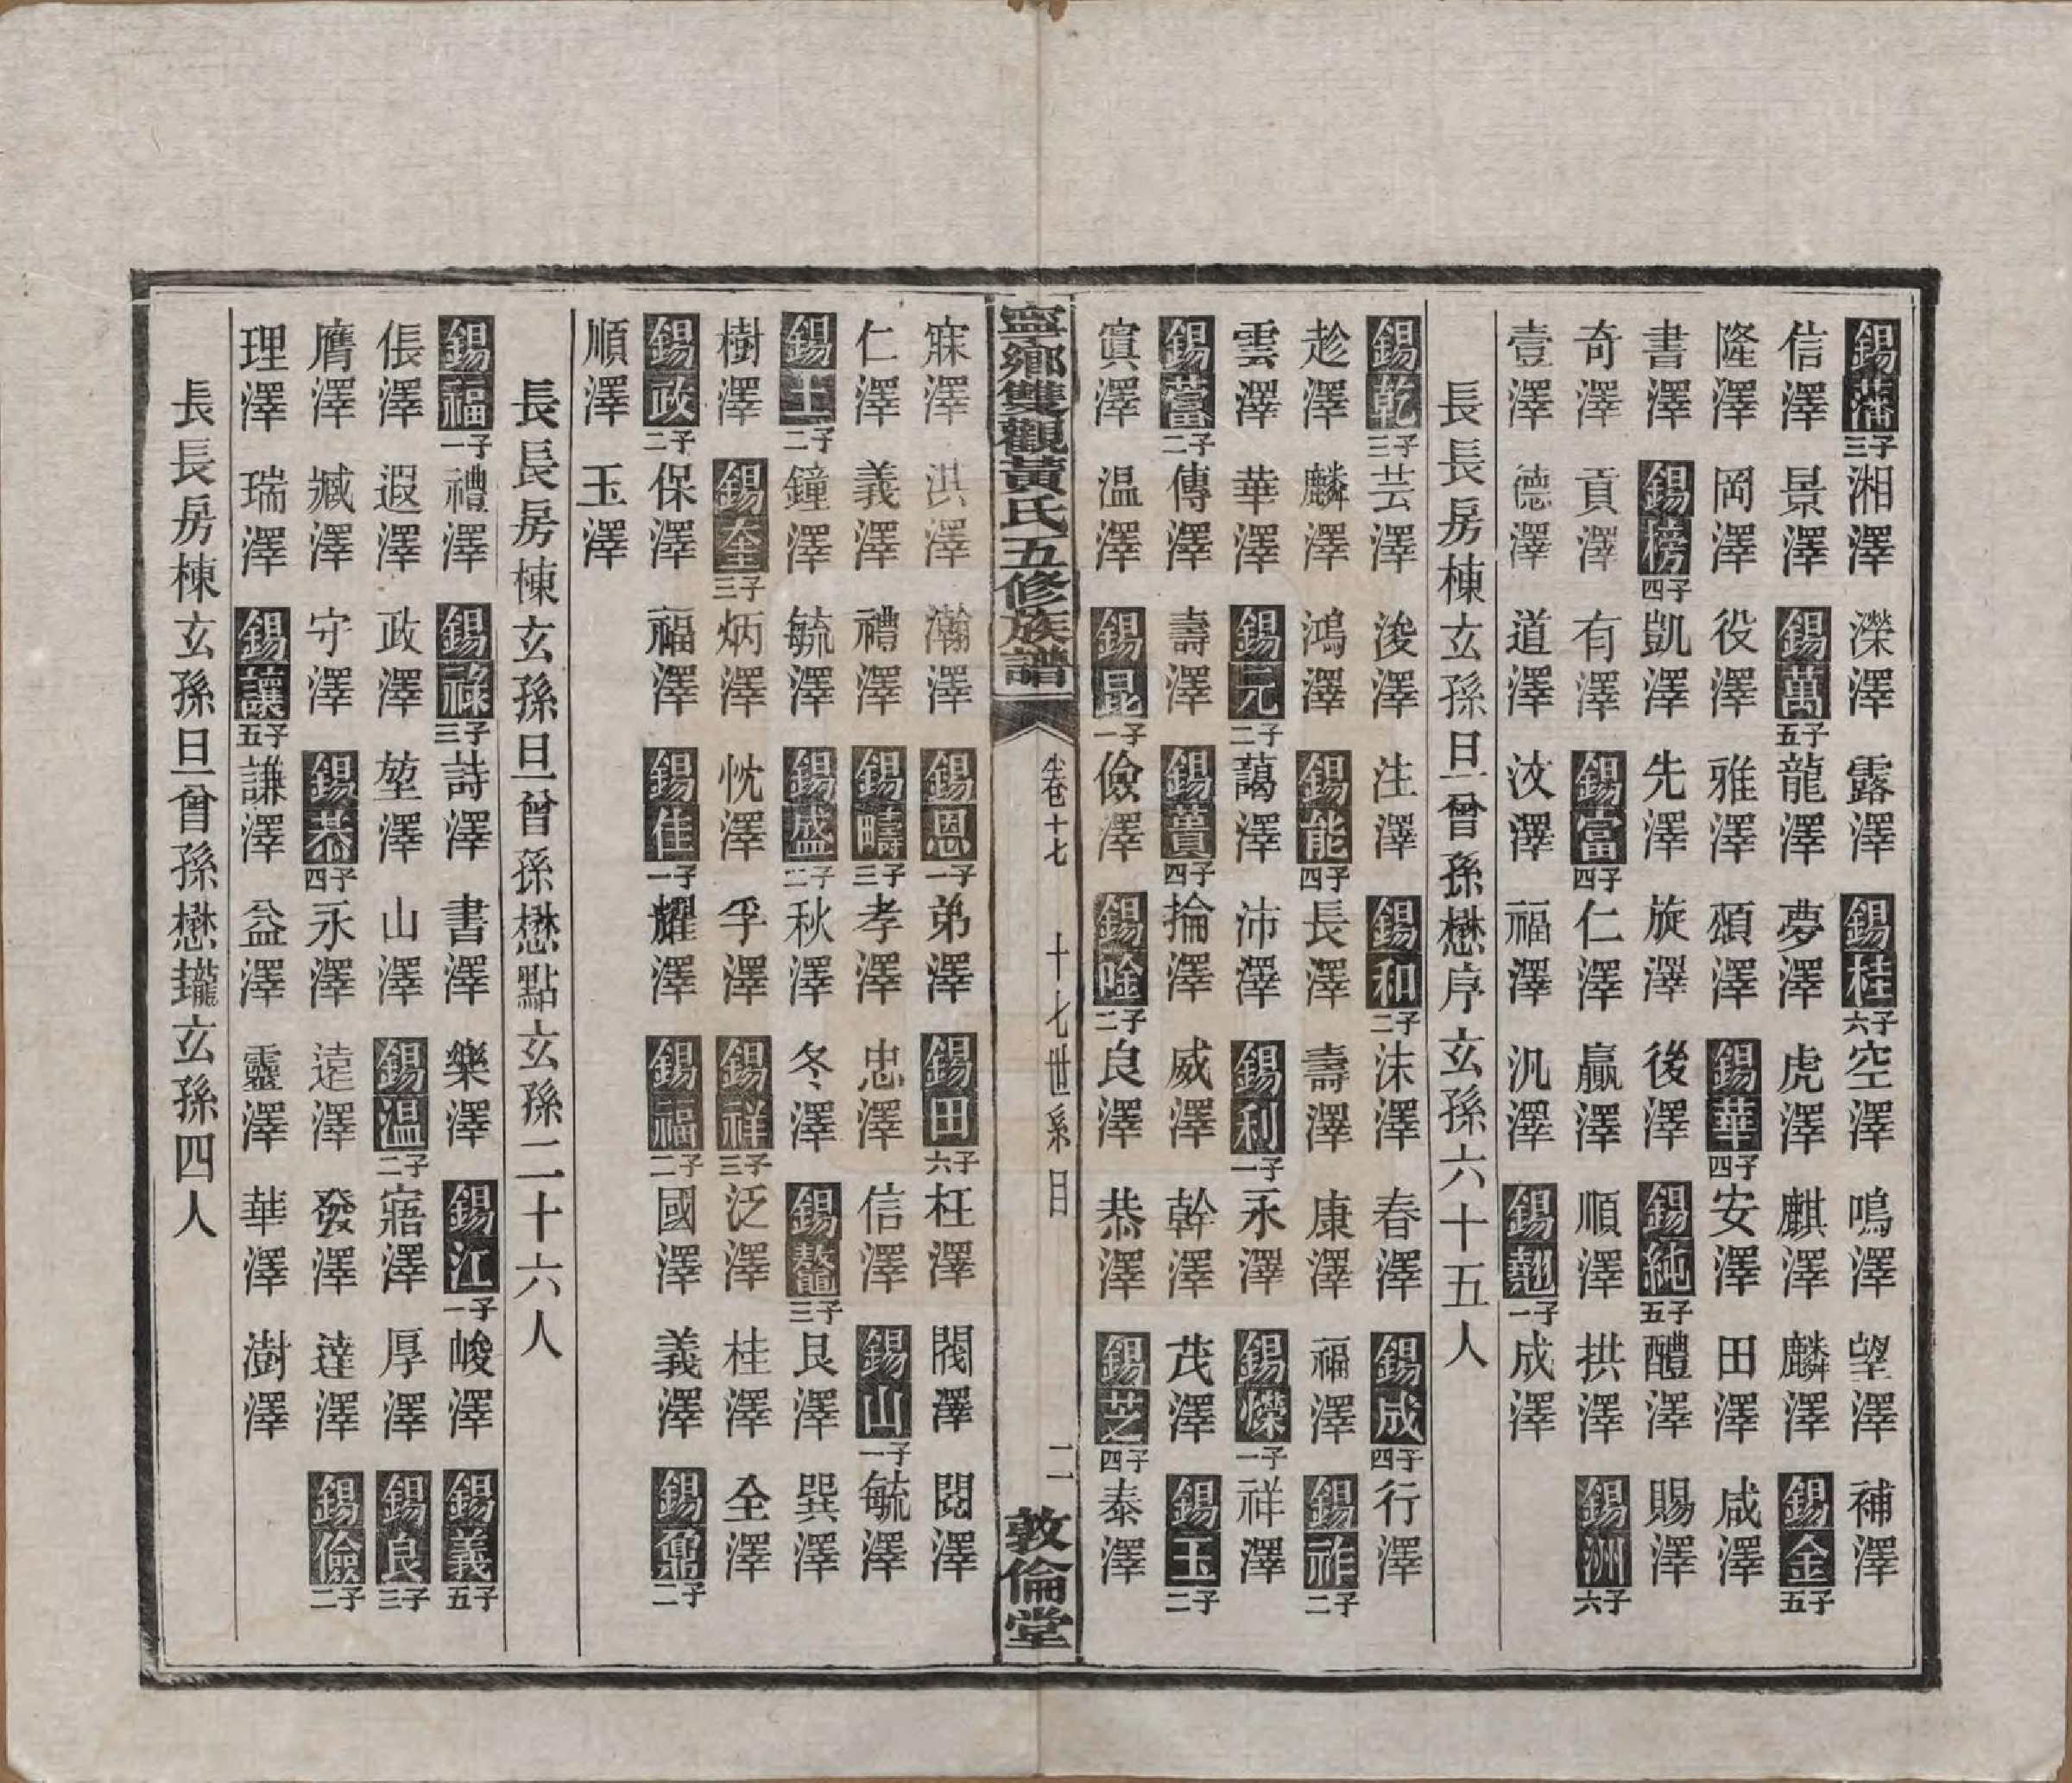 錫藩三子湘澤 濼澤 露澤 錫桂六子空澤 鳴澤 望澤 補澤
信澤 景澤 錫萬五子龍澤 夢澤 虎澤 麒澤 麟澤 錫金五子
隆澤 岡澤 役澤 雅澤 頌澤 錫華四子安澤 田澤 咸澤
書澤 錫榜四子凱澤 先澤 旋澤 後澤 錫純五子醴澤 賜澤
奇澤 貢澤 有澤 錫富四子仁澤 贏澤 順澤 拱澤 錫洲六子
壹澤 德澤 道澤 汶澤 福澤 汎澤 錫翹一子成澤
長長房棟玄孫旦曾孫懋序玄孫六十五人
錫乾三子芸澤 浚澤 注澤 錫和二子沫澤 春澤 錫成四子行澤
趁澤 麟澤 鴻澤 錫能四子長澤 壽澤 康澤 福澤 錫祚二子
雲澤 華澤 錫元二子藹澤 沛澤 錫利一子永澤 錫爍一子祥澤
錫蕾二子傳澤 壽澤 錫蕢四子掄澤 威澤 幹澤 茂澤 錫玉二子
寘澤 温澤 錫昆一子儉澤 錫唫二子良澤 恭澤 錫芝四子泰澤
寧鄉雙觀黃氏五修族譜 卷十七 十七世系目 二 敦倫堂
寐澤 洪澤 瀚澤 錫恩一子弟澤 錫田六子枉澤 閥澤 閱澤
仁澤 義澤 禮澤 錫疇三子孝澤 忠澤 信澤 錫山一子毓澤
錫王二子鐘澤 毓澤 錫盛二子秋澤 冬澤 錫鼇三子艮澤 巽澤
樹澤 錫奎三子炳澤 忱澤 孚澤 錫祥三子泛澤 桂澤 全澤
錫政二子保澤 福澤 錫佳一子耀澤 錫福二子國澤 義澤 錫鼐二子
順澤 玉澤
長長房棟玄孫旦曾孫懋點玄孫二十六人
錫福一子禮澤 錫祿三子詩澤 書澤 樂澤 錫江一子峻澤 錫義五子
倀澤 遐澤 政澤 堃澤 山澤 錫温二子寤澤 厚澤 錫良三子
膺澤 臧澤 守澤 錫恭四子永澤 遠澤 發澤 達澤 錫儉二子
理澤 瑞澤 錫讓五子謙澤 益澤 靈澤 華澤 澍澤
長長房棟玄孫旦曾孫懋瓏玄孫四人